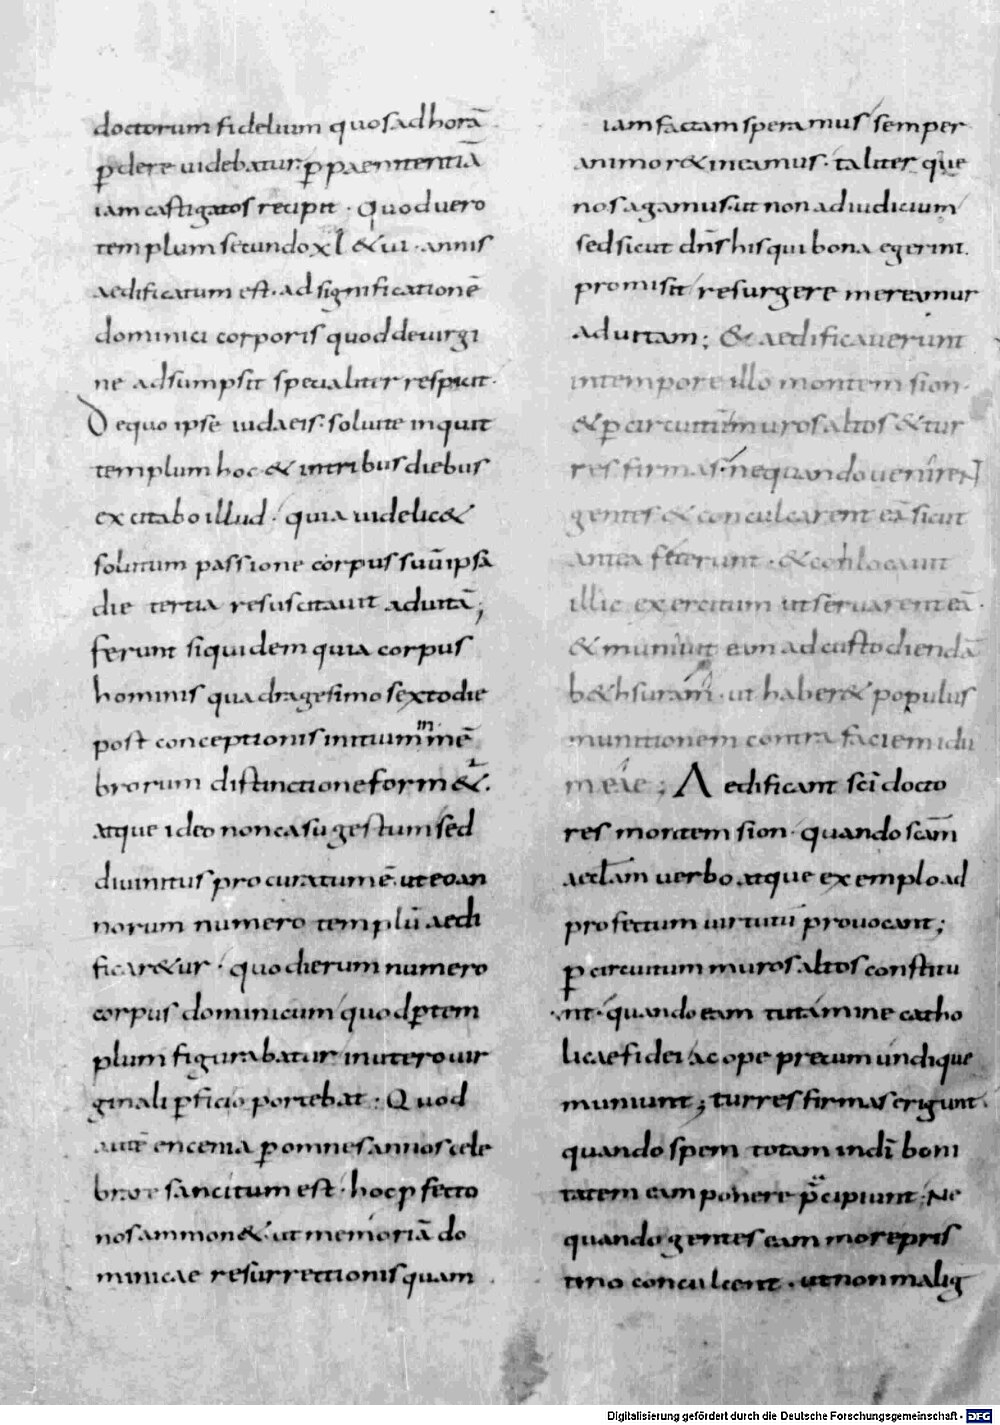 doctorum fidelium quos ad horā
ꝑdere uidebatur ꝑ paenitentiā
iam castigatos recipit · Quod uero
templum secundo xl & ui · annis
aedificatum est · ad significationē
dominici corporis quod de uirgi
ne adsumpsit specialiter respicit ·
De quo ipse iudaeis · soluite inquit
templum hoc & in tribus diebus
excitabo illud · quia uidelic&
solutum passione corpus suū ipsa
die tertia resuscitauit ad uitā ;
ferunt siquidem quia corpus
hominis quadragesimo sexto die
post conceptionis initium in mē
brorum distinctione form&ur ·
atque ideo non casu gestum sed
diuinitus procuratum ē ut eo an
norum numero templū aedi
ficar&ur · quo dierum numero
corpus dominicum quod ꝑ tem
plum figurabatur in utero uir
ginali ꝑficio portebat · Quod
autē encenia ꝑ omnes annos cele
brare sancitum est · hoc ꝓfecto
nos ammon& · ut memoriā do
minicae resurrectionis quam
iam factam speramus semper
animo r&ineamus · taliter que
nos agamus · ut non ad iudicium
sed sicut dn̄s his qui bona egerint
promisit resurgere mereamur
ad uitam ; & aedificauerunt
in tempore illo montem sion ·
& ꝑ circuitū muros altos & tur
res firmas · nequando uenirent
gentes & conculcarent eā sicut
antea fecerunt · & conlocauit
illic exercitum ut seruarent eā ·
& muniuit eam ad custodiendā
b&hsuram · ut haber& populus
munitionem contra faciem idu
meae ; Aedificant sc̄i docto
res montem sion · quando sc̄am
aecl̄am uerbo atque exemplo ad
profectum uirtutū prouocant ;
ꝑ circuitum muros altos constitu
unt · quando eam tutamine catho
licae fidei ac ope precum undique
muniunt ; turres firmas erigunt ·
quando spem totam in dī boni
tatem eam ponere p̄cipiunt · Ne
quando gentes eam more pris
tino conculcent · ut non malig